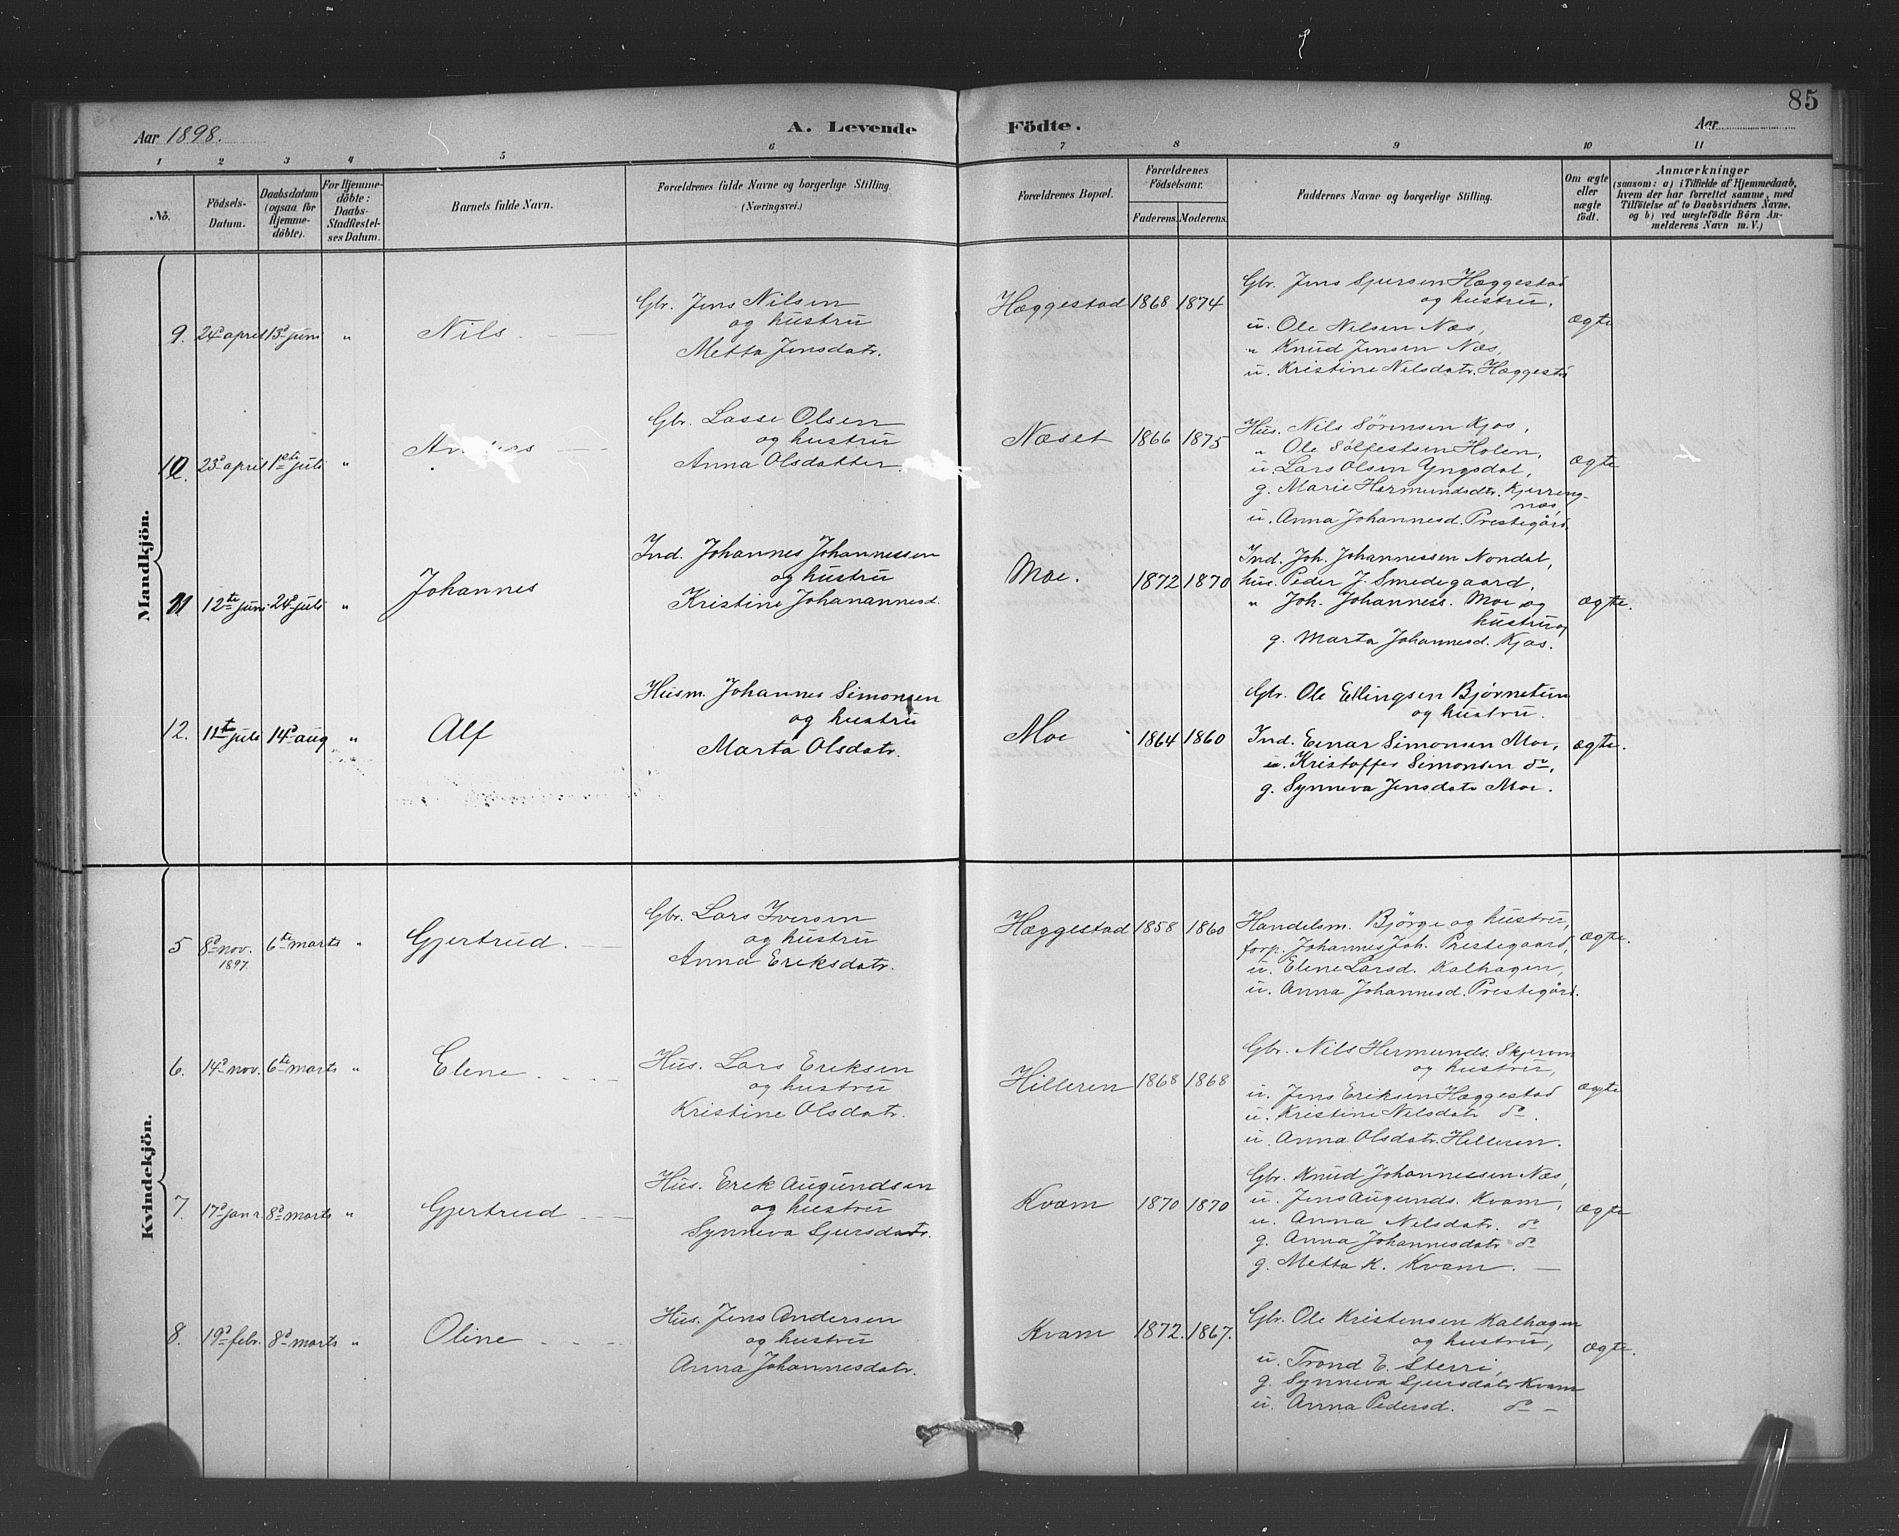 85
Aar 1898.
A. Levende Födte.
Aar
1 2 3 4 5 6 7 8 9 10 11
Nö.
Födsels-Datum.
Daabsdatum (ogsaa for Hjemme-döbte).
For Hjemme-döbte: Daabs-Stadfæstel-ses Datum.
Barnets fulde Navn.
Forældrenes fulde Navne og borgerlige Stilling.
(Næringsvei.)
Forældrenes Bopæl.
Forældrenes Födselsaar.
Faderens. Moderens.
Faddernes Navne og borgerlige Stilling.
Om ægte eller uægte födt.
Anmærkninger
(saasom: a) i Tilfælde af Hjemmedaab,
hvem der har forrettet samme, med
Tilföielse af to Daabsvidners Navne,
og b) ved uægtefödte Börn An-
melderens Navn m. V.)
Mandkjön.
9. 24d april 13d juni " Nils
Gbr. Jens Nilsen
og hustru
Metta Jensdatr.
Hæggestad 1868 1874
Gbr. Jens Sjursen Hæggestad
og hustru,
u. Ole Nilsen Næs,
" Knud Jensen Næs,
u. Kristine Nilsdatr. Hæggestd
ægte
10. 23d april 1ste juli "
Gbr. Lasse Olsen
og hustru
Anna Olsdatter.
Næset 1866 1875
Hus. Nils Sørensen Kjos,
" Ole Sølfestsen Holen,
u. Lars Olsen Yngsdal,
g. Marie Hermundsdtr. Kjerreng-
næs,
u. Anna Johannesd. Prestegård
ægte
11 12te juni 24d juli " Johannes
Ind. Johannes Johannessen
og hustru
Kristine Johanannesd.
Moe. 1872 1870
Ind. Joh. Johannessen Nondal,
hus. Peder J. Smedegaard,
" Joh. Johanness. Moe og
hustru og
g. Marta Johannesd. Kjos.
ægte.
12. 11te juli 14d aug " Alf
Husm. Johannes Simonsen
og hustru
Marta Olsdatr.
Moe 1864 1860
Gbr. Ole Ellingsen Bjørnetun
og hustru.
Ind. Einar Simonsen Moe,
u. Kristoffer Simonsen do,
g. Synneva Jensdatr Moe.
ægte.
Kvindekjön.
5 8d nov. 1897. 6te marts " Gjertrud.
Gbr. Lars Iversen
og hustru
Anna Eriksdatr.
Hæggestad 1858 1860
Handelsm. Bjørge og hustru,
forp. Johannes Joh. Prestegaard,
u. Elene Larsd. Kalhagen,
u. Anna Johannesd. Prestegård.
ægte.
6. 14d nov. 6te marts " Elene
Hus. Lars Eriksen
og hustru
Kristine Olsdatr.
Hilleren 1868 1868
Gbr. Nils Hermunds. Skjerom
og hustru,
u. Jens Eriksen Hæggestad
u. Kristine Nilsdatr do.
u. Anna Olsdatr. Hilleren.
ægte
7. 17d janr. 8d marts " Gjertrud
Hus. Erik Augundsen
og hustru
Synneva Sjursdatr.
Kvam 1870 1870
Gbr. Knud Johannessen Næs,
u. Jens Augunds. Kvam,
u. Anna Nilsdatr. do
g. Anna Johannesdatr do
g. Metta K. Kvam.
ægte
8. 19d febr. 8d marts " Oline
Hus. Jens Andersen
og hustru
Anna Johannesdatr.
Kvam 1872. 1867.
Gbr. Ole Kristensen Kalhagen
og hustru,
u. Trond E. Sterri,
g. Synneva Sjursdatr Kvam
u. Anna Pedersd. do
ægte.